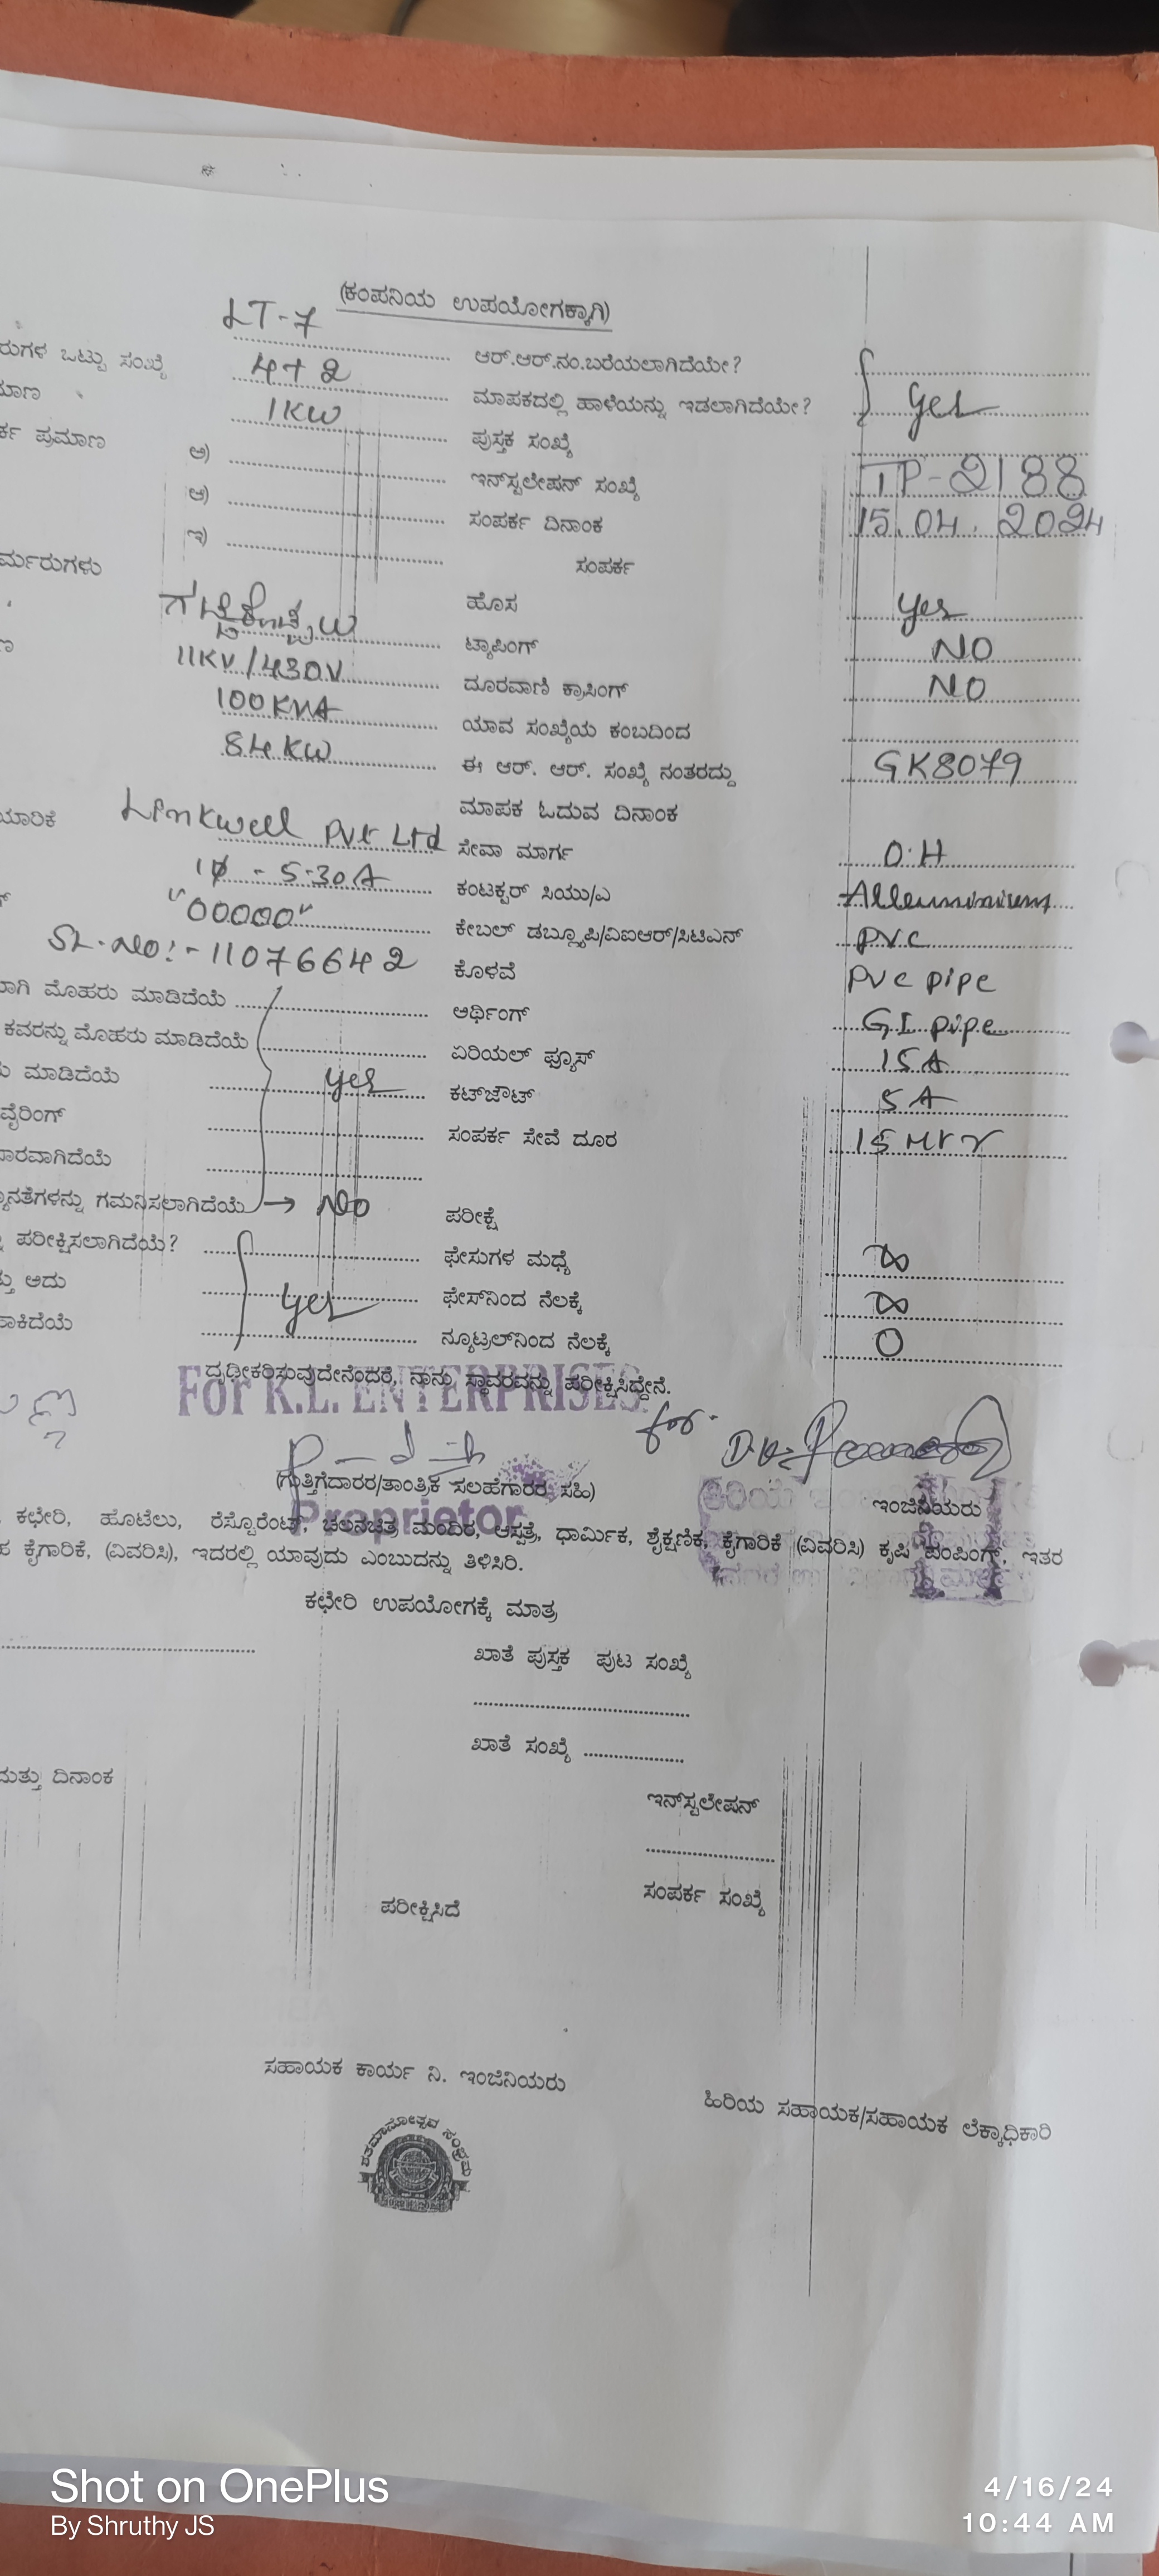 (ಕಂಪನಿಯ ಉಪಯೋಗಕ್ಕಾಗಿ)
LT-7
ರುಗಳ ಒಟ್ಟು ಸಂಖ್ಯೆ 4+2 ಆರ್.ಆರ್.ನಂ.ಬರೆಯಲಾಗಿದೆಯೇ?
ಮಾಣ 1KW ಮಾಪಕದಲ್ಲಿ ಹಾಳೆಯನ್ನು ಇಡಲಾಗಿದೆಯೇ? yes
ರ್ಕ ಪ್ರಮಾಣ ಅ) ಪುಸ್ತಕ ಸಂಖ್ಯೆ
ಆ) ಇನ್‌ಸ್ಟಲೇಷನ್ ಸಂಖ್ಯೆ TP-2188
ಇ) ಸಂಪರ್ಕ ದಿನಾಂಕ 15.04.2024
ರ್ಮರುಗಳು ಸಂಪರ್ಕ
ಹೊಸ yes
ಟ್ಯಾಪಿಂಗ್ NO
11KV/430V ದೂರವಾಣಿ ಕ್ರಾಸಿಂಗ್ NO
100KVA ಯಾವ ಸಂಖ್ಯೆಯ ಕಂಬದಿಂದ
84KW ಈ ಆರ್. ಆರ್. ಸಂಖ್ಯೆ ನಂತರದ್ದು GK8079
ಮಾಪಕ ಓದುವ ದಿನಾಂಕ
ಯಾರಿಕೆ Linkwell Pvt Ltd ಸೇವಾ ಮಾರ್ಗ O.H
1φ - 5-30A ಕಂಟಕ್ಟರ್ ಸಿಯು/ಎ Alleuminium
"00000" ಕೇಬಲ್ ಡಬ್ಲ್ಯೂಪಿ/ವಿಐಆರ್/ಸಿಟಿಎಸ್ PVC
SL.No:-11076642 ಕೊಳವೆ PVC pipe
ಬಾಗಿ ಮೊಹರು ಮಾಡಿದೆಯೆ ಅರ್ಥಿಂಗ್ GI pipe
ಕವರನ್ನು ಮೊಹರು ಮಾಡಿದೆಯೆ ಏರಿಯಲ್ ಫ್ಯೂಸ್ 15A
ು ಮಾಡಿದೆಯೆ yes ಕಟ್‌ಔಟ್ 5A
ವೈರಿಂಗ್ ಸಂಪರ್ಕ ಸೇವೆ ದೂರ 15 Mtr
ದಾರವಾಗಿದೆಯೆ
್ಯೂನತೆಗಳನ್ನು ಗಮನಿಸಲಾಗಿದೆಯೆ → No ಪರೀಕ್ಷೆ
ಪರೀಕ್ಷಿಸಲಾಗಿದೆಯೆ? ಫೇಸುಗಳ ಮಧ್ಯೆ ∞
ತ್ತು ಅದು yes ಫೇಸ್‌ನಿಂದ ನೆಲಕ್ಕೆ ∞
ಹಾಕಿದೆಯೆ ನ್ಯೂಟ್ರಲ್‌ನಿಂದ ನೆಲಕ್ಕೆ 0
ದೃಢೀಕರಿಸುವುದೇನೆಂದರೆ, ನಾನು ಸ್ಥಾವರವನ್ನು ಪರೀಕ್ಷಿಸಿದ್ದೇನೆ.
For K.L. ENTERPRISES
for
(ಗುತ್ತಿಗೆದಾರರ/ತಾಂತ್ರಿಕ ಸಲಹೆಗಾರರ ಸಹಿ) ಇಂಜಿನಿಯರು
Proprietor
ಕಛೇರಿ, ಹೊಟೆಲು, ರೆಸ್ಟೊರೆಂಟ್, ಚಲನಚಿತ್ರ ಮಂದಿರ, ಆಸ್ಪತ್ರೆ, ಧಾರ್ಮಿಕ, ಶೈಕ್ಷಣಿಕ, ಕೈಗಾರಿಕೆ (ವಿವರಿಸಿ) ಕೃಷಿ ಪಂಪಿಂಗ್, ಇತರ
ಹ ಕೈಗಾರಿಕೆ, (ವಿವರಿಸಿ), ಇದರಲ್ಲಿ ಯಾವುದು ಎಂಬುದನ್ನು ತಿಳಿಸಿರಿ.
ಕಛೇರಿ ಉಪಯೋಗಕ್ಕೆ ಮಾತ್ರ
ಖಾತೆ ಪುಸ್ತಕ ಪುಟ ಸಂಖ್ಯೆ
ಖಾತೆ ಸಂಖ್ಯೆ
ಮತ್ತು ದಿನಾಂಕ
ಇನ್‌ಸ್ಟಲೇಷನ್
ಸಂಪರ್ಕ ಸಂಖ್ಯೆ
ಪರೀಕ್ಷಿಸಿದೆ
ಸಹಾಯಕ ಕಾರ್ಯ ನಿ. ಇಂಜಿನಿಯರು
ಹಿರಿಯ ಸಹಾಯಕ/ಸಹಾಯಕ ಲೆಕ್ಕಾಧಿಕಾರಿ
ಶತಮಾನೋತ್ಸವ ಸಂಭ್ರಮ
Shot on OnePlus
By Shruthy JS
4/16/24
10:44 AM